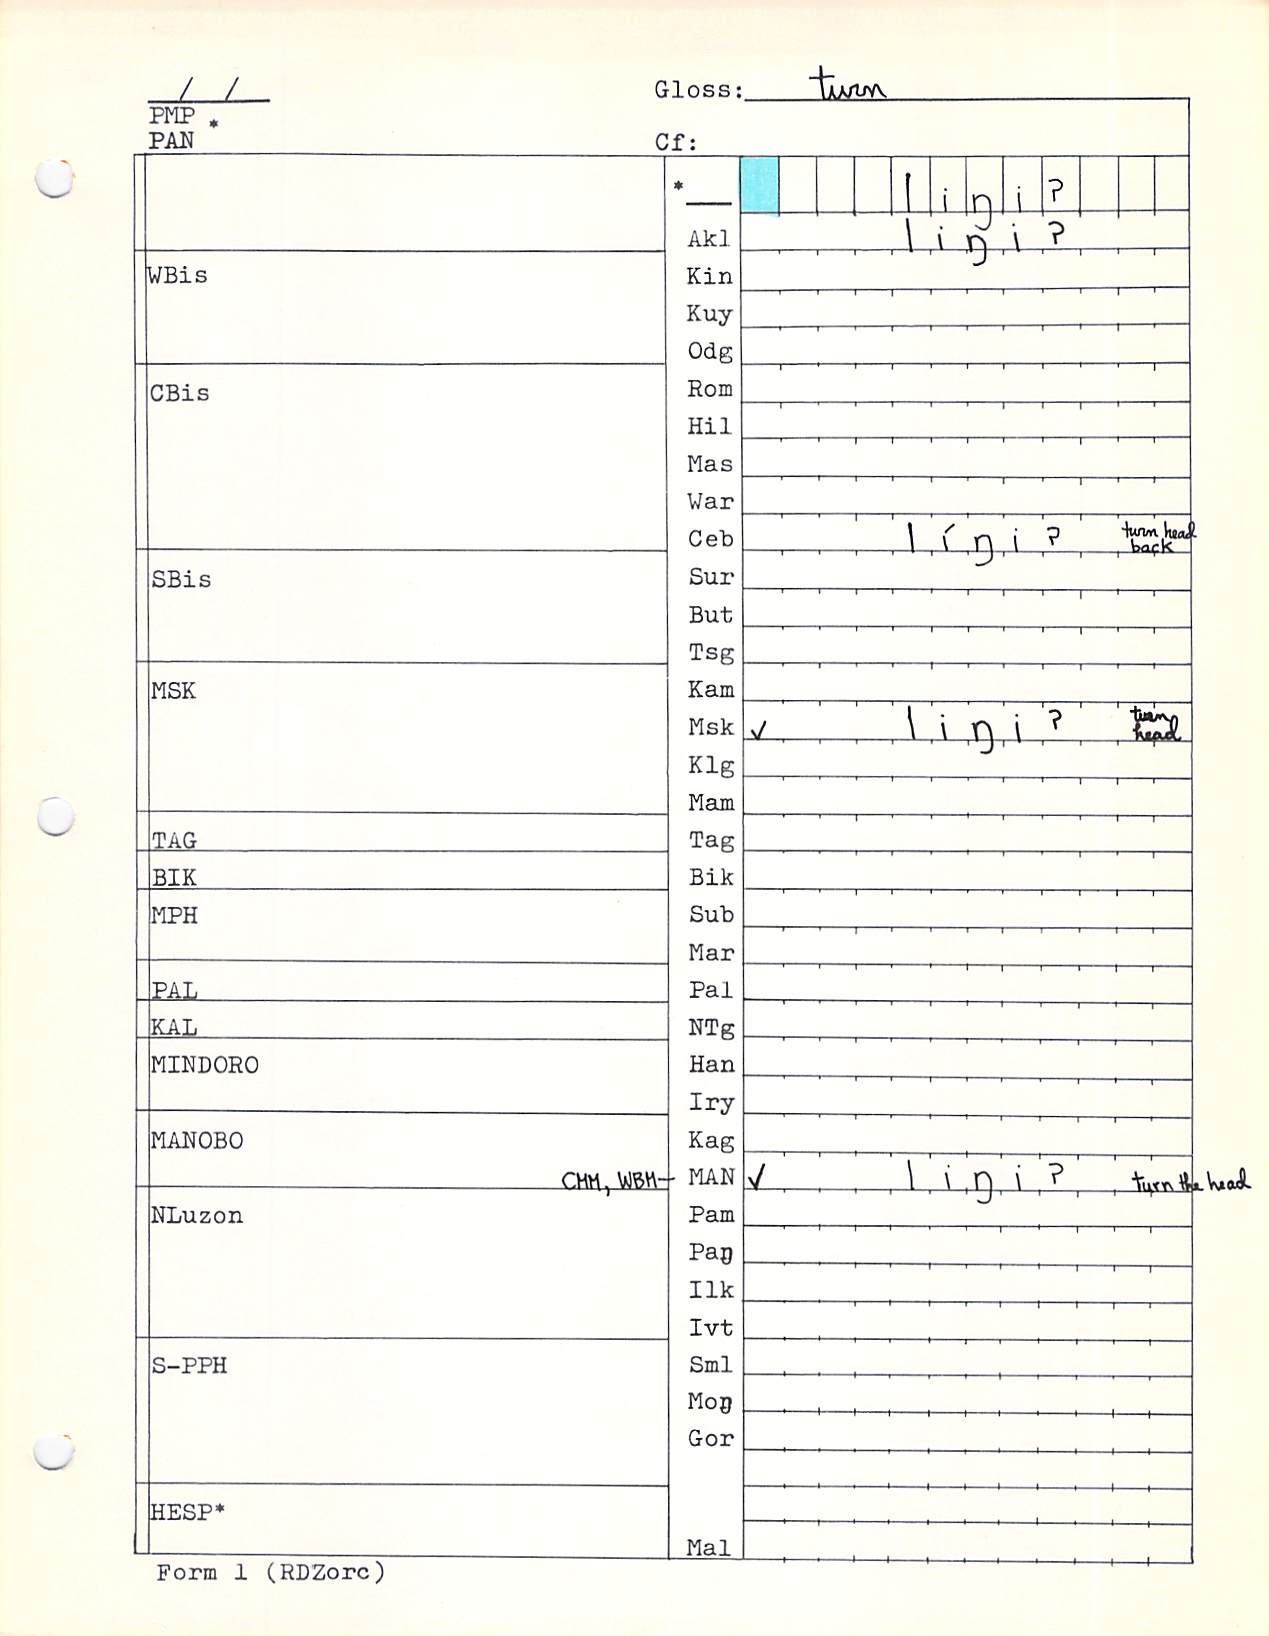 / / Gloss: turn
PMP *
PAN Cf:
* __ liŋiʔ
Akl liŋiʔ
WBis Kin
Kuy
Odg
CBis Rom
Hil
Mas
War
Ceb líŋiʔ turn head back
SBis Sur
But
Tsg
MSK Kam
Msk ✓ liŋiʔ turn head
Klg
Mam
TAG Tag
BIK Bik
MPH Sub
Mar
PAL Pal
KAL NTg
MINDORO Han
Iry
MANOBO Kag
CMM, WBM— MAN ✓ liŋiʔ turn the head
NLuzon Pam
Paŋ
Ilk
Ivt
S-PPH Sml
Moŋ
Gor
HESP*
Mal
Form 1 (RDZorc)